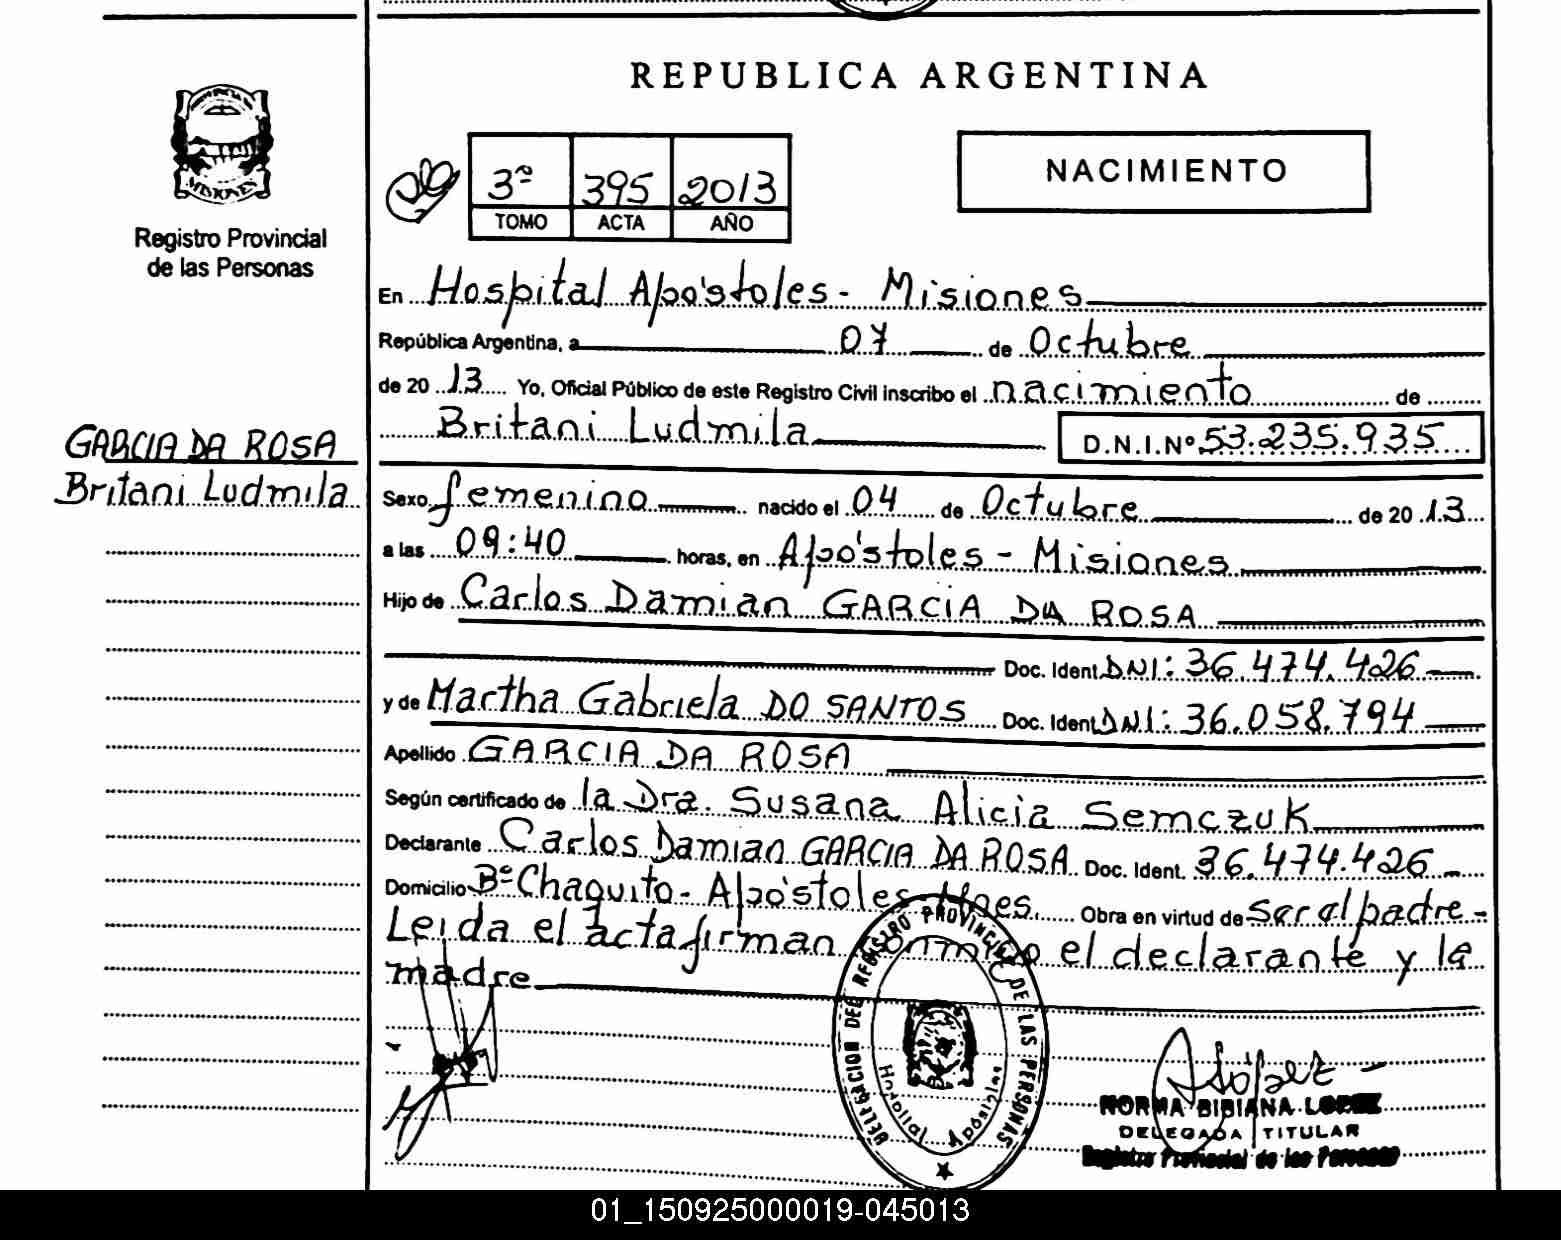 REPUBLICA ARGENTINA
MISIONES
Registro Provincial
de las Personas
3º 395 2013
TOMO ACTA AÑO
NACIMIENTO
En Hospital Apóstoles - Misiones
República Argentina, a 07 de Octubre
de 20 13 Yo, Oficial Público de este Registro Civil inscribo el nacimiento de
Britani Ludmila D.N.I.Nº 53.235.935
GARCIA DA ROSA
Britani Ludmila
Sexo femenino nacido el 04 de Octubre de 20 13
a las 09:40 horas, en Apóstoles - Misiones
Hijo de Carlos Damian GARCIA DA ROSA
Doc. Ident DNI: 36.474.426
y de Martha Gabriela DO SANTOS Doc. Ident DNI: 36.058.794
Apellido GARCIA DA ROSA
Según certificado de la Dra. Susana Alicia Semczuk
Declarante Carlos Damian GARCIA DA ROSA Doc. Ident. 36.474.426
Domicilio Bº Chaquito - Apóstoles Mnes. Obra en virtud de ser el padre -
Leida el acta firman conmigo el declarante y la
madre
DELEGACION DEL REGISTRO PROVINCIAL DE LAS PERSONAS
Hospital Apóstoles
NORMA BIBIANA LOPEZ
DELEGADA TITULAR
Registro Provincial de las Personas
01_150925000019-045013